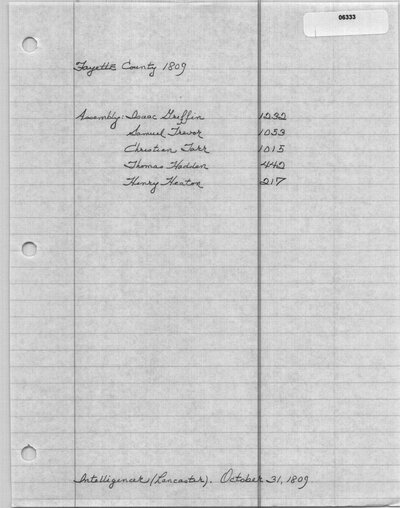 06333
Fayette County 1809
Assembly: Isaac Griffin 1232
Samuel Trevor 1053
Christian Tarr 1015
Thomas Hadden 442
Henry Heaton 217
Intelligencer (Lancaster). October 31, 1809